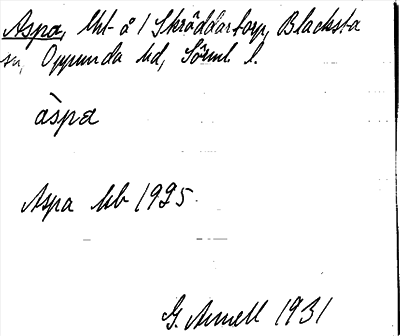 Aspa, lht å 1 Skräddartorp, Blacksta
sn, Oppunda hd, Sörml l.
àspa
Aspa kb 1925.
G. Arnell 1931